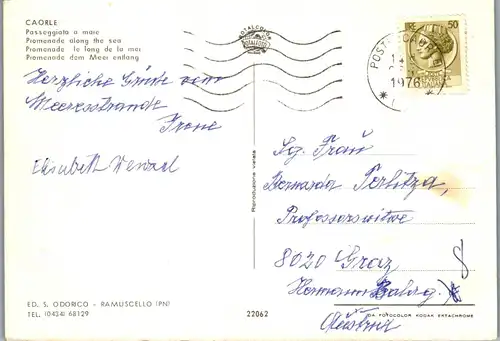 CAORLE
Passeggiata a mare
Promenade along the sea
Promenade le long de la mer
Promenade dem Meer entlang
Herzliche Grüße vom
Meeresstrande
Elisabeth
TOTALCOLOR
50
POST
1976
Frau
Bernarda Perlitza,
Professorswitwe
8020 Graz
Hermann
Riproduzione vietata
ED. S. ODORICO - RAMUSCELLO (PN)
TEL. (0434) 68129
22062
DA FOTOCOLOR KODAK EKTACHROME